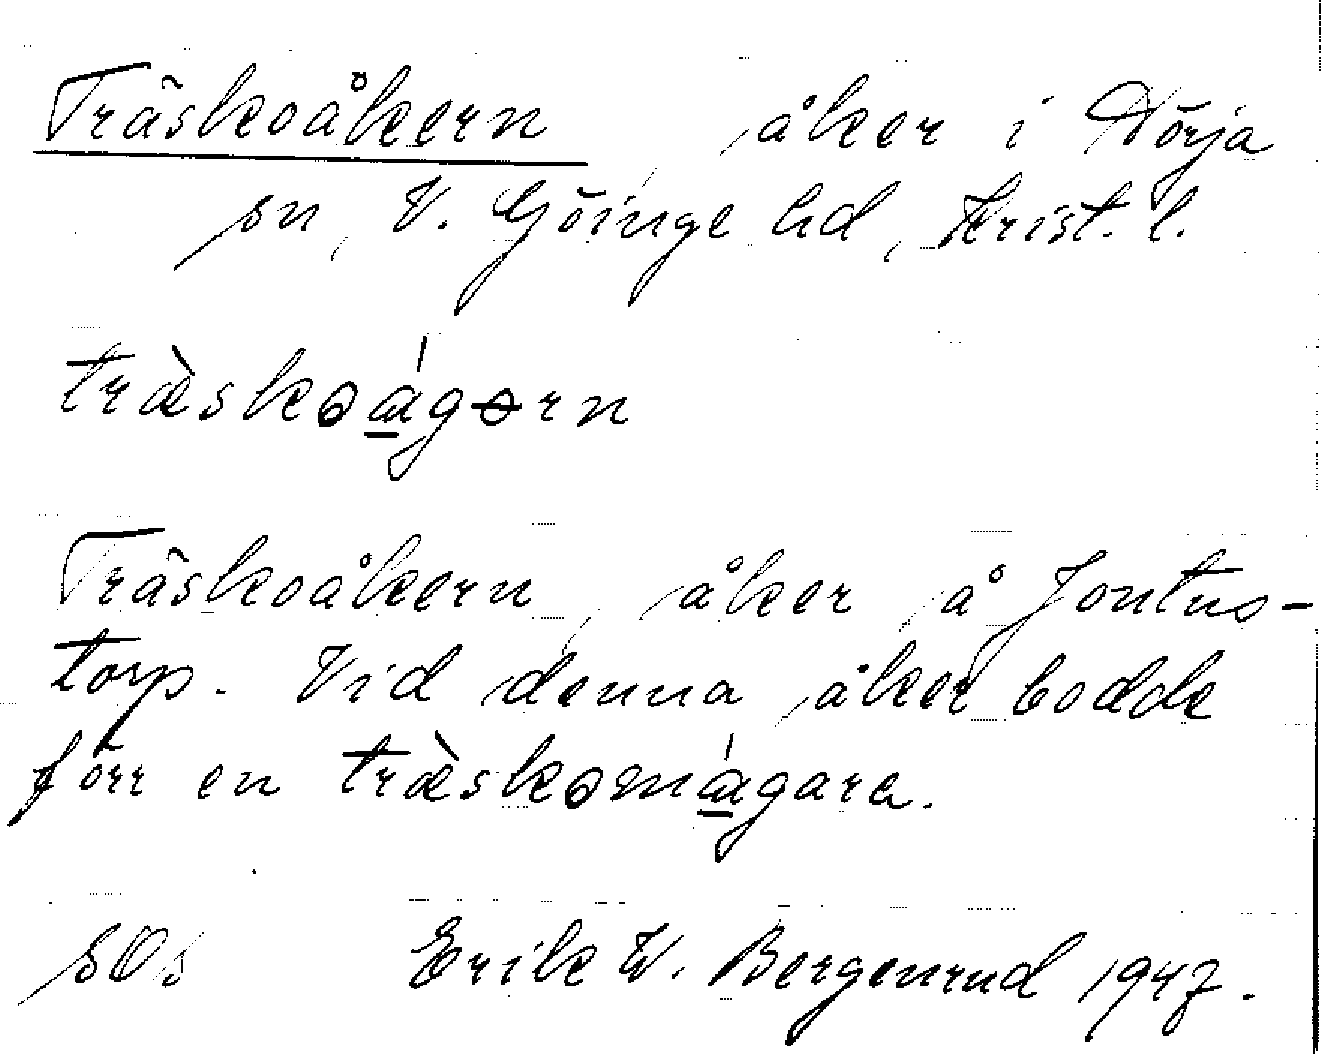 Träskoåkern, åker i Nörja
sn, V. Göinge hd, Krist. l.
træ̀skoá̲gɵrn
Träskoåkern, åker å Jontus-
torp. Vid denna åker bodde
förr en træ̀skomá̲gara.
Erik W. Bergenrud 1947.